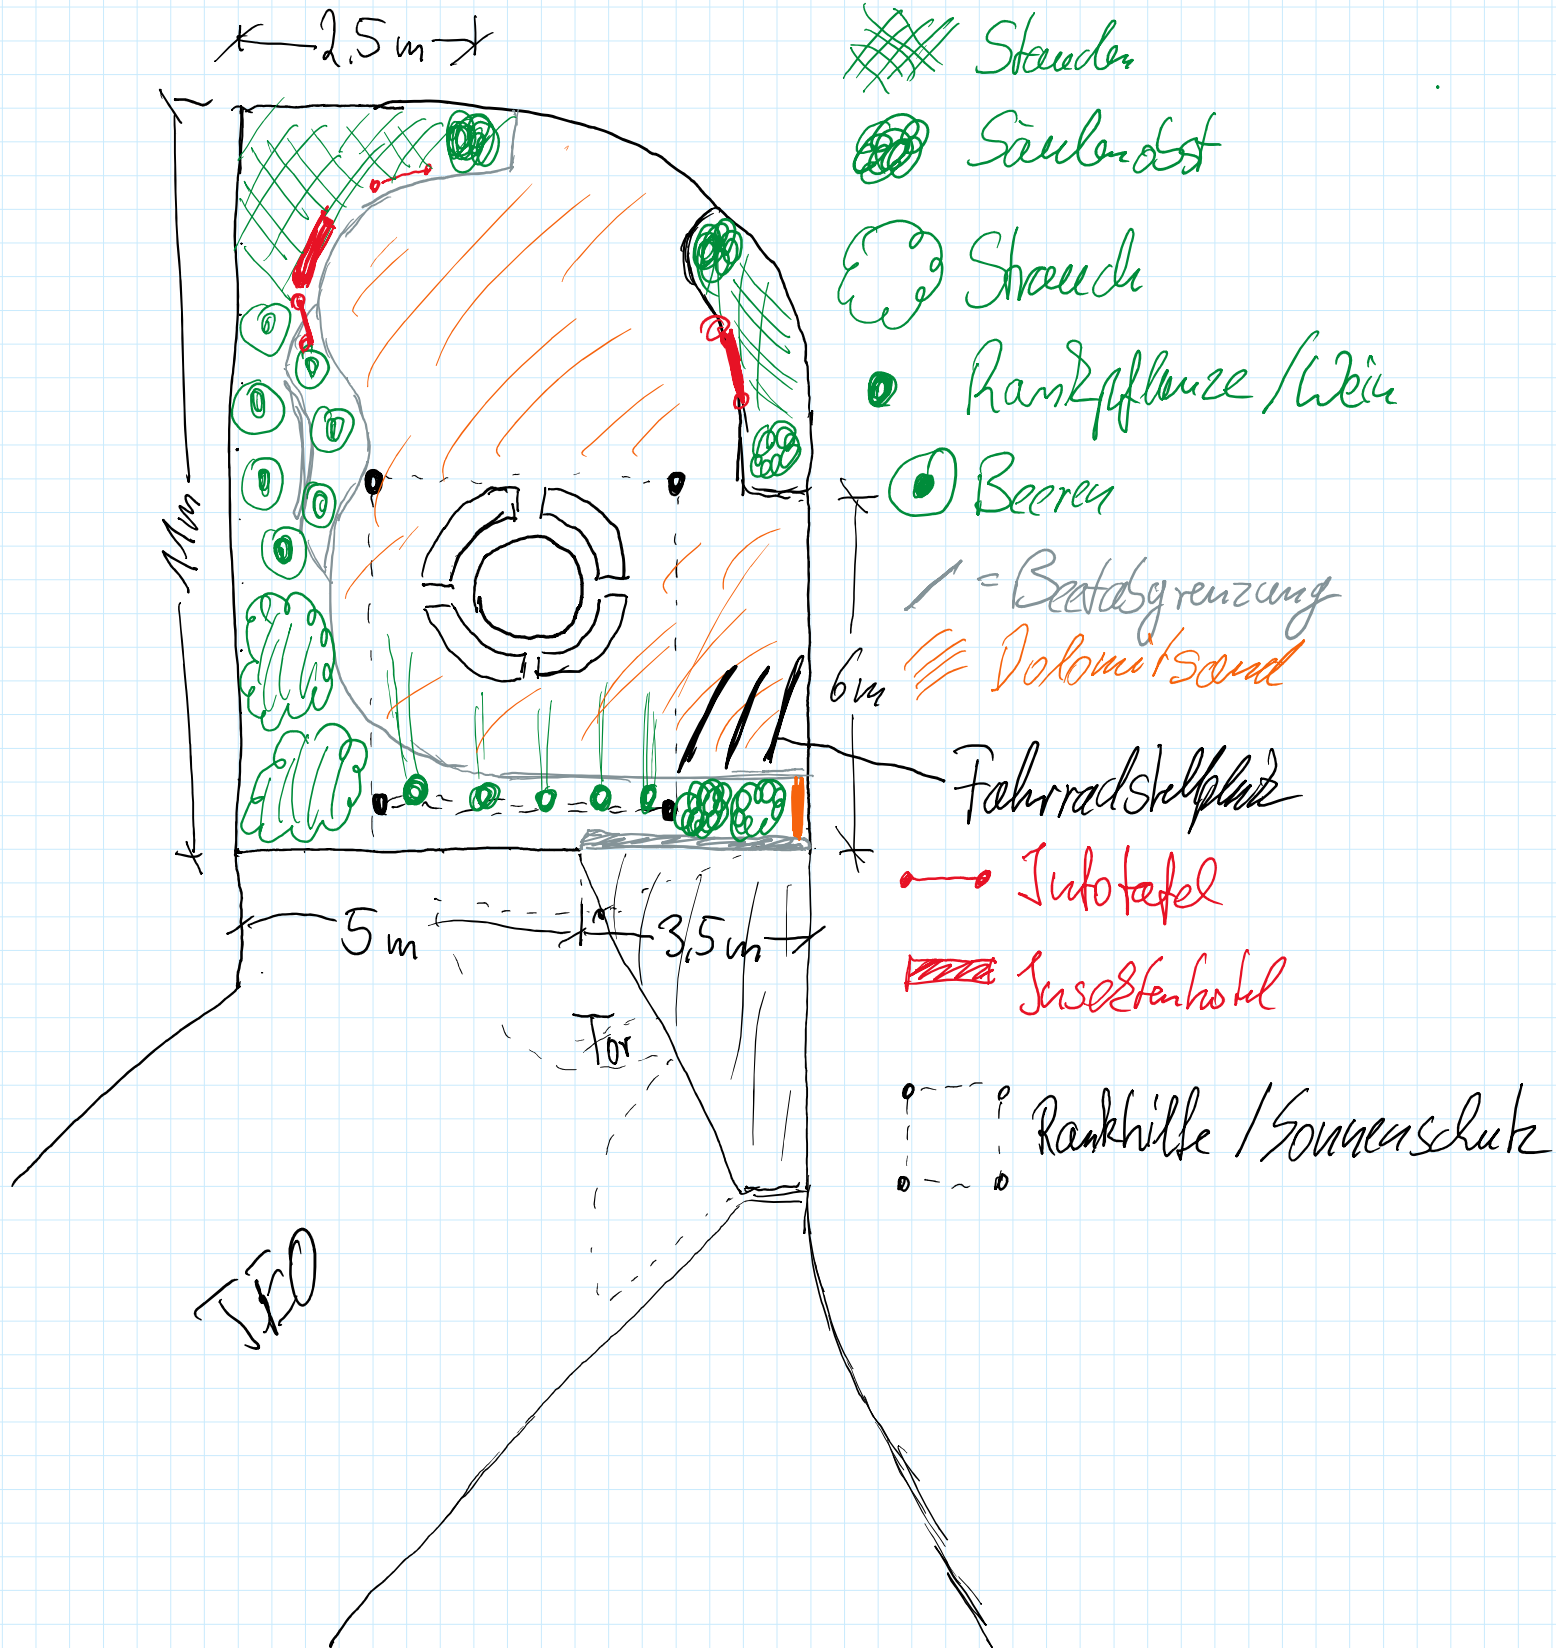 2,5 m
Stauden
Säulenobst
Strauch
Rankpflanze / Wein
11m
Beeren
= Beetabgrenzung
Dolomitsand
6m
Fahrradstellplatz
Infotafel
5 m
3,5 m
Insektenhotel
Tor
Rankhilfe / Sonnenschutz